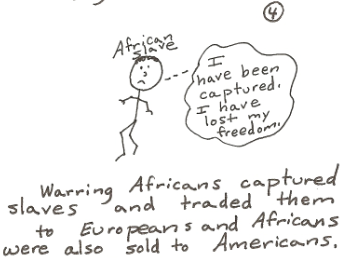 4
African
slave
I
have been
captured.
I have
lost my
freedom.
Warring Africans captured
slaves and traded them
to Europeans and Africans
were also sold to Americans.